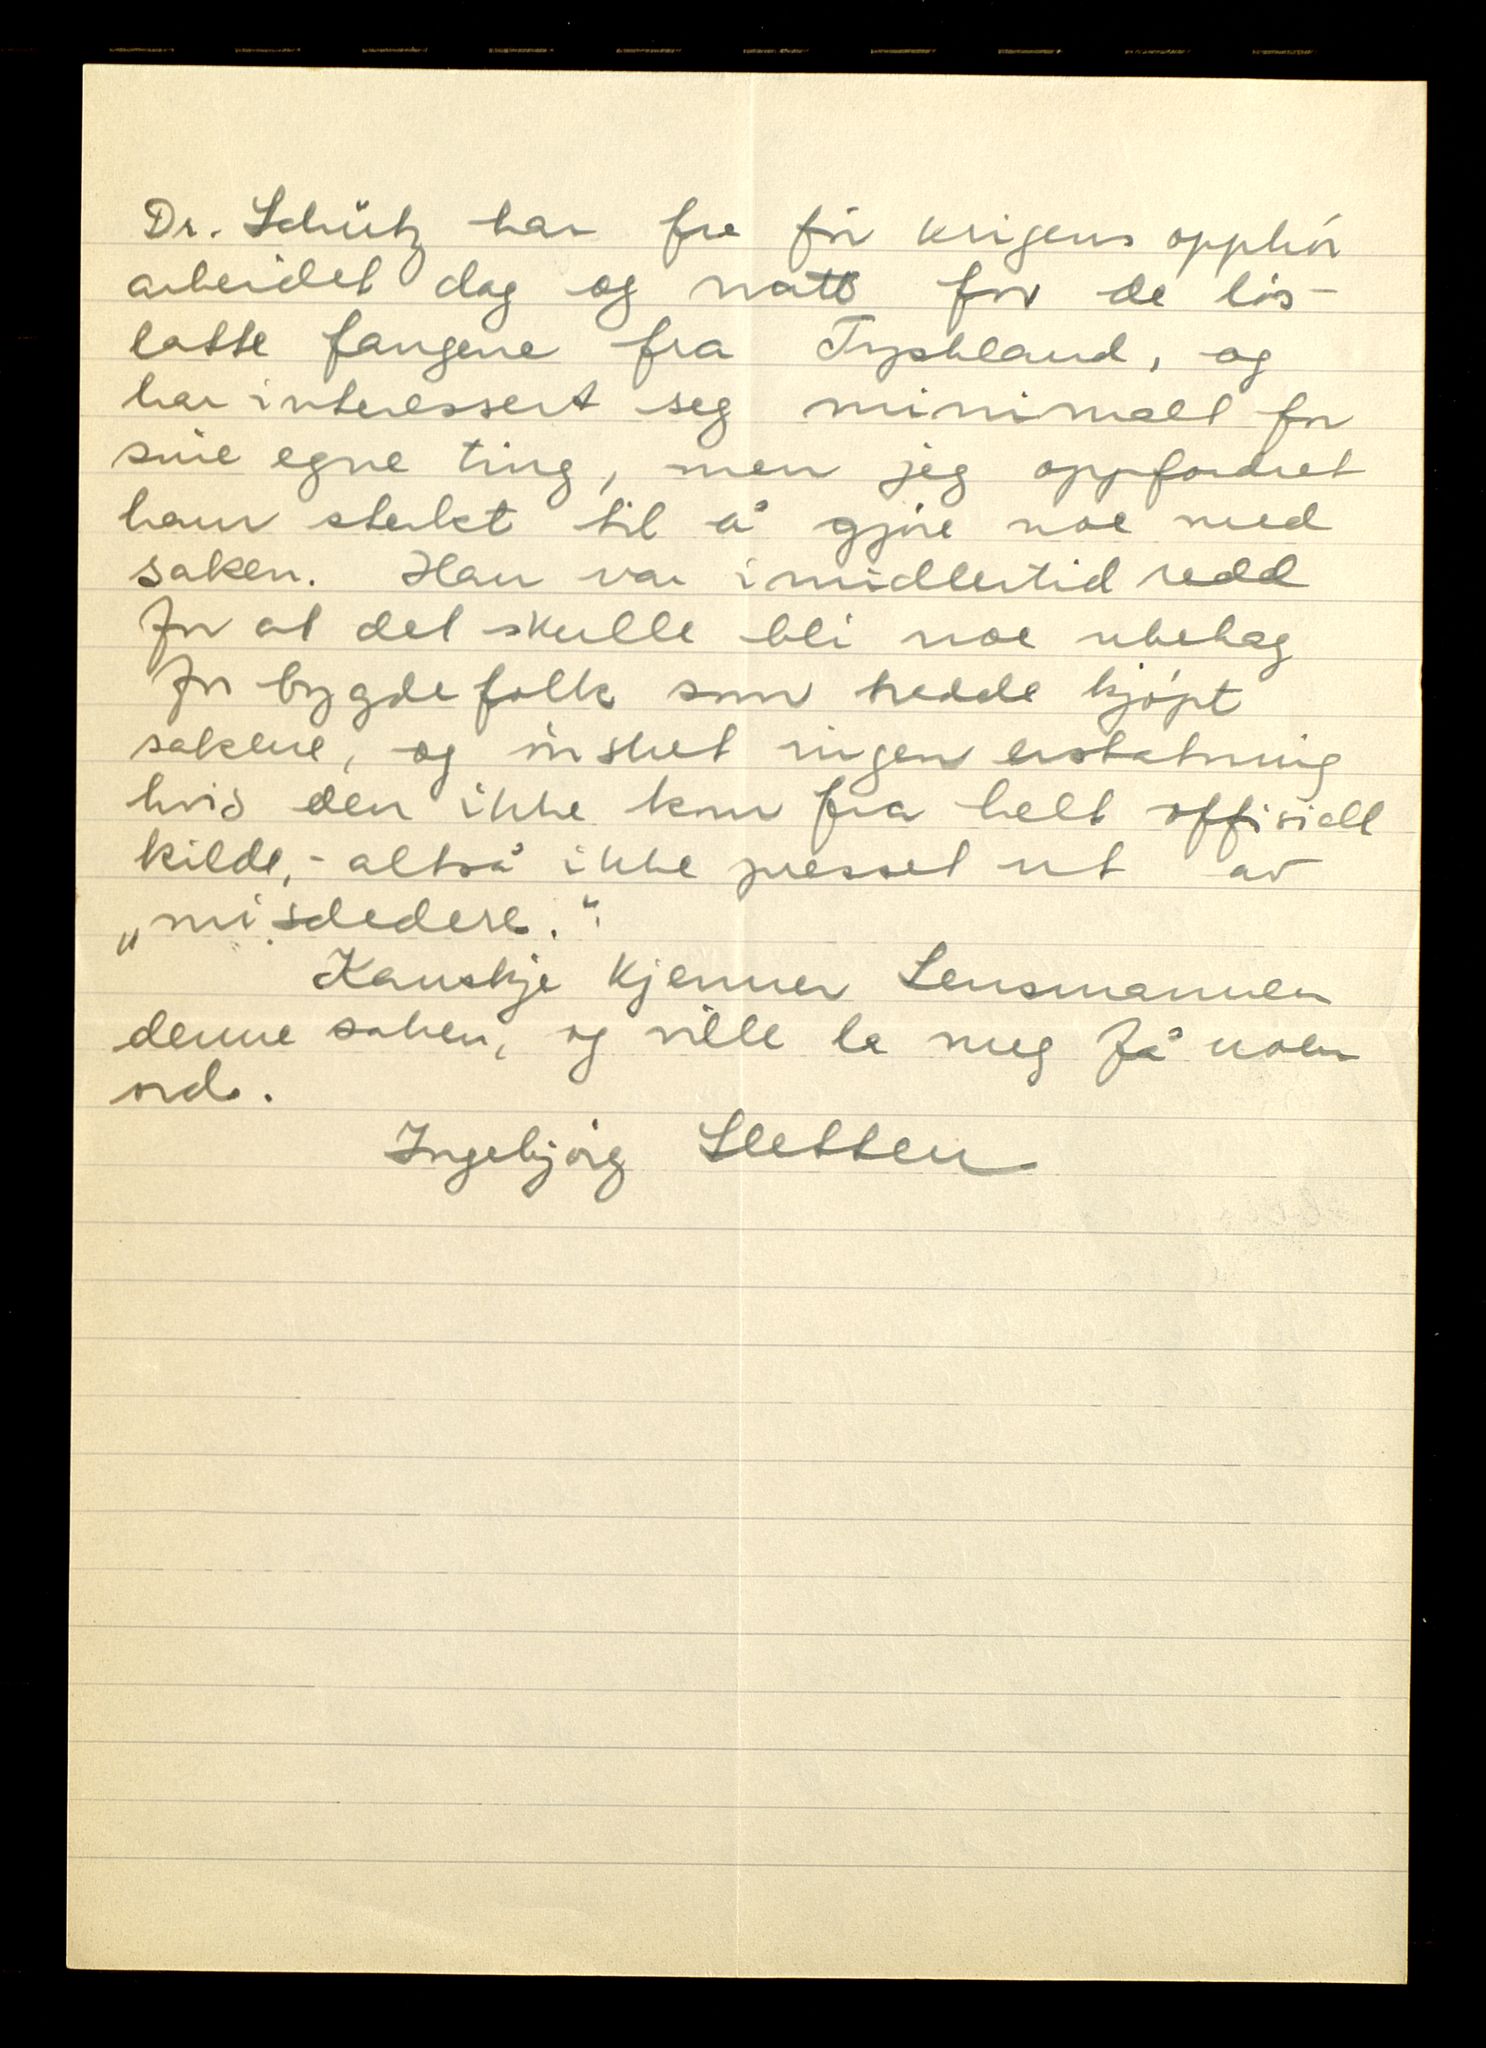 Dr. Schütz har fra för krigens opphör
arbeidet dag og natt for de lös-
latte fangene fra Tyskland, og
har interessert seg minimalt for
sine egne ting, men jeg oppfordret
ham sterkt til å gjöre noe med
saken. Han var imidlertid redd
for at det skulle bli noe ubehag
for bygdefolk som hadde kjöpt
sakene, og önsket ingen erstatning
hvis den ikke kom fra helt offisiell
kilde, - altså ikke presset ut av
„misdedere.“
Kanskje kjenner Lensmannen
denne saken, og ville la meg få noen
ord.
Ingebjörg Sletten